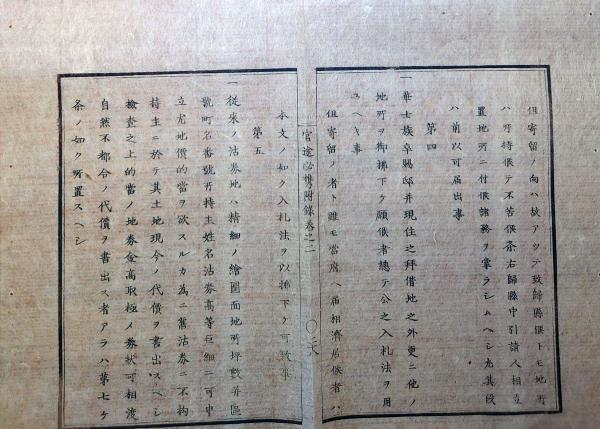 但寄留ノ向ハ故アツテ致歸縣候トモ地所
ハ可持候テ不苦候条右歸縣中引請人相立
置地所ニ付候諸務ヲ掌ラシムヘシ尤其段
ハ前以可届出事
第四
一華士族卒賜邸并現住之拜借地之外更ニ他ノ
地所ヲ御拂下ク願候者總テ公之入札法ヲ用
ユヘキ事
但寄留ノ者ト雖モ當府ヘ届相濟居候者ハ
官途必携附録巻之二
本文ノ如ク入札法ヲ以拂下ケ可致事
第五
一從來ノ沽券地ハ精細ノ繪圖面地所坪數并區
號町名番號所持主姓名沽券高等巨細ニ可申
立尤地價的當ヲ欲スルカ為ニ舊沽券ニ不拘
持主ニ於テ其土地現今ノ代價ヲ書出スヘシ
檢査之上的當ノ地券金高取極メ券狀可相渡
自然不都合ノ代價ヲ書出ス者アラハ第七ケ
条ノ如ク所置スヘシ